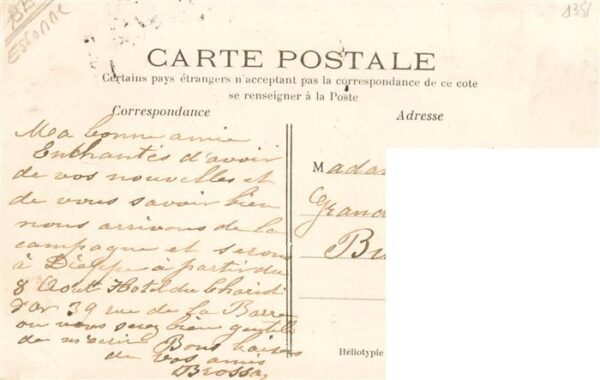 BB
Essonne
1358
CARTE POSTALE
Certains pays étrangers n'acceptent pas la correspondance de ce coté
se renseigner à la Poste
Correspondance
Adresse
Ma bonne amie
Enchantés d'avoir
de vos nouvelles et
de vous savoir bien
nous arrivons de la
campagne et serons
à Dieppe à partir du
8 Aout Hotel du Chariot
d'Or 39 rue de la Barre
ou vous serez bien gentille
de m'écrire Bons baisers
de vos amis
Brossa
Mada
Grand
Bu
Héliotypie